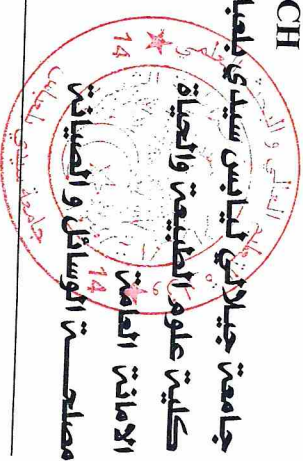 CH
جامعة جيلالي ليابس سيدي بلعبا
كلية علوم الطبيعة والحياة
الامانة العامة
مصلحة الوسائل و الصيانة
14
14